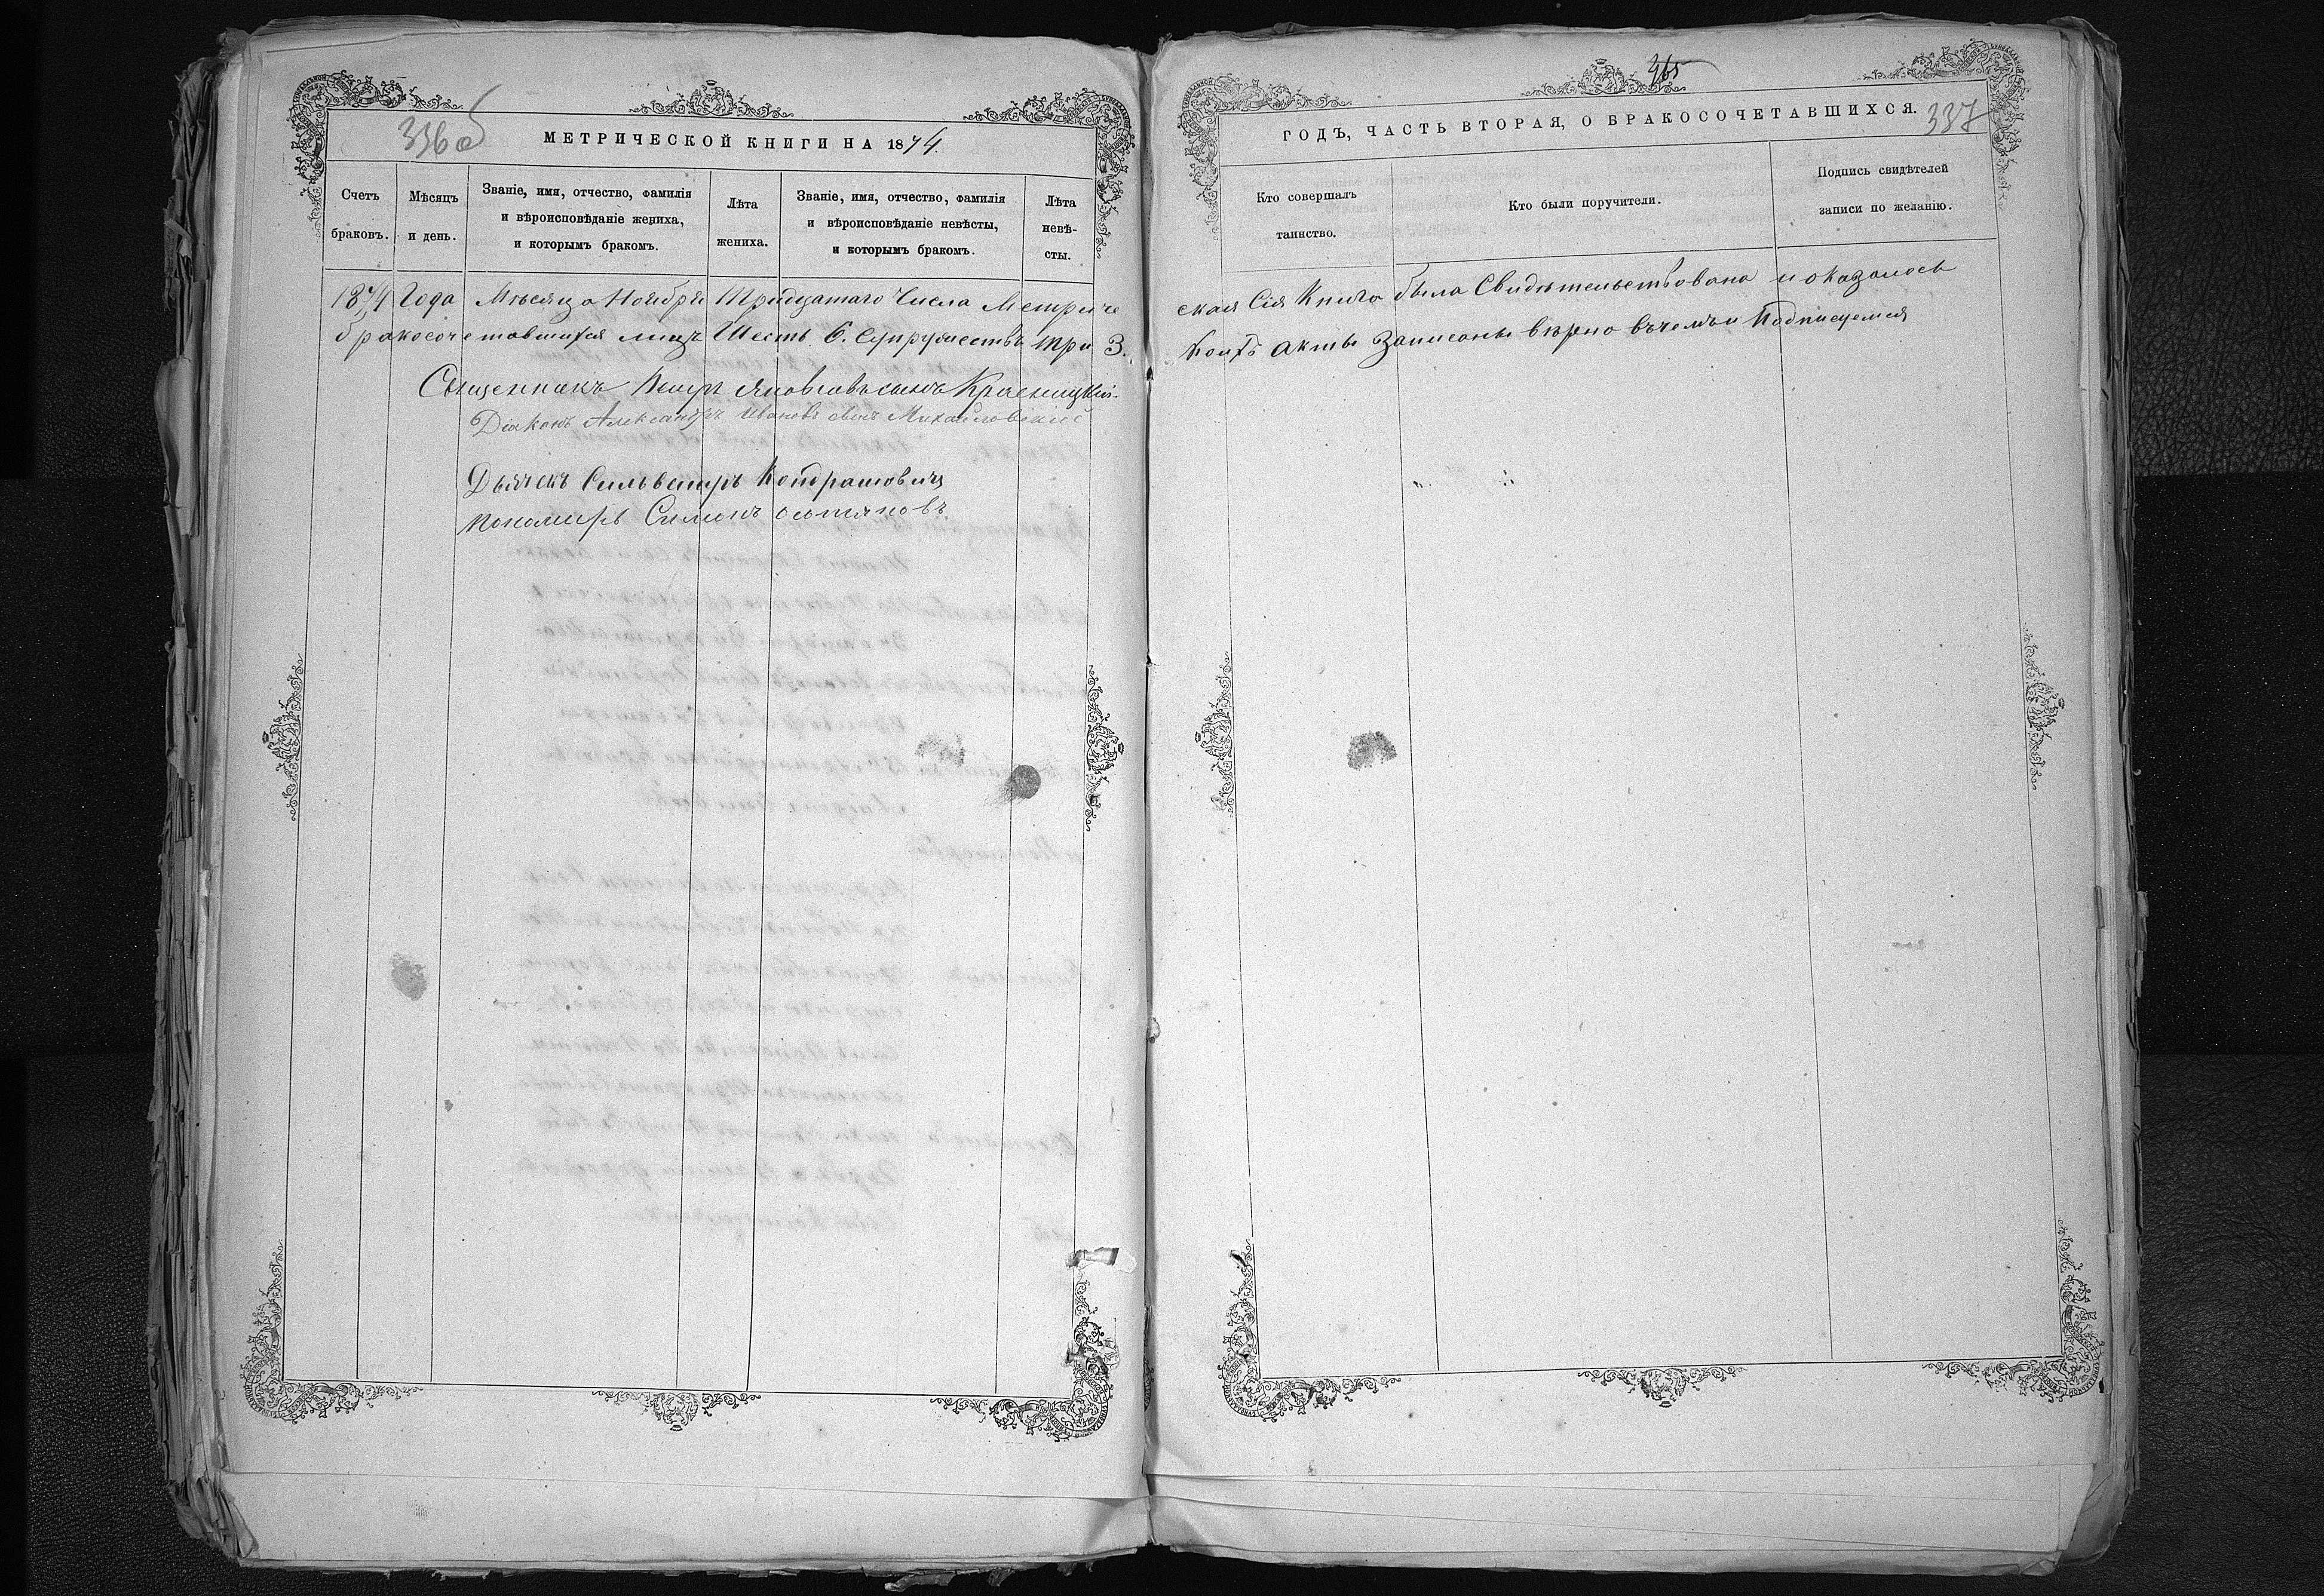 336об
МЕТРИЧЕСКОЙ КНИГИ НА 1874.
Счетъ браковъ.
Мѣсяцъ и день.
Званіе, имя, отчество, фамилія и вѣроисповѣданіе жениха, и которымъ бракомъ.
Лѣта жениха.
Званіе, имя, отчество, фамилія и вѣроисповѣданіе невѣсты, и которымъ бракомъ.
Лѣта невѣ-
сты.
1874 Года Мѣсяца Ноября Тридцатаго Числа Метриче
бракосочетавшихся лицъ Шесть 6. Супружествъ три 3.
Священникъ Петръ Яковлевъ сынъ Красницкій
Діаконъ Александръ Ивановъ сынъ Михайловскій
Дьячекъ Сильвестръ Кондратовичъ
Пономарь Симонъ
465
337
ГОДЪ, ЧАСТЬ ВТОРАЯ, О БРАКОСОЧЕТАВШИХСЯ.
Кто совершалъ таинство.
Кто были поручители.
Подпись свидѣтелей записи по желанію.
ская Сія Книга была Свидѣтельствована и оказалось
акты Записаны вѣрно въ чемъ и Подписуемся